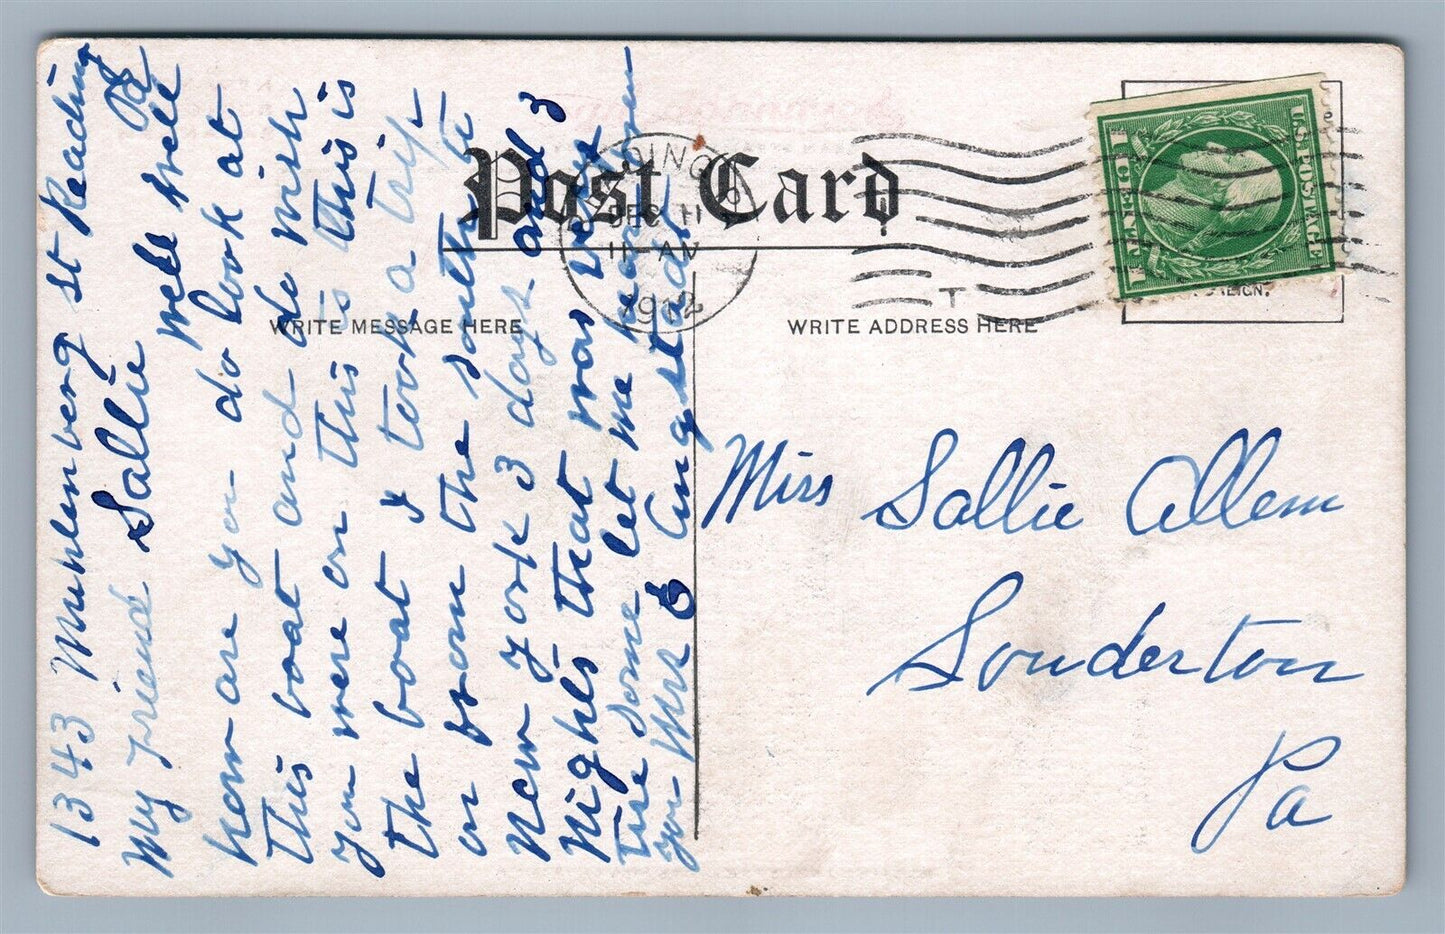 Post Card
READING PA.
DEC 11
11-AM
1912
U.S. POSTAGE
1 CENT 1
WRITE MESSAGE HERE
WRITE ADDRESS HERE
1343 Muhlenberg st Reading
Pa
My Friend Sallie well well
how are you do look at
this boat and do wish
you were on this is this is
the boat I took a trip
on from the south to
New York 3 days and 3
Nights that was
some let me hear from
you Mrs E Angstadt
Miss Sallie Allem
Souderton
Pa